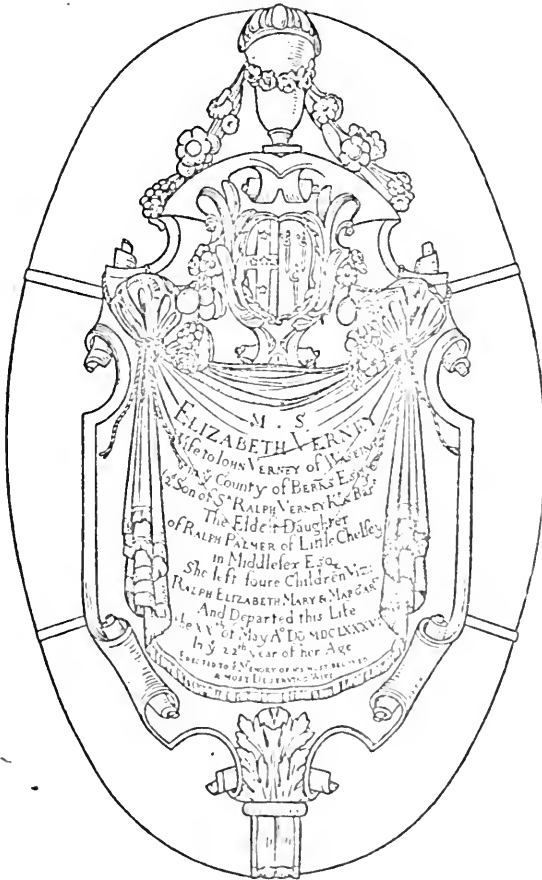 M . S .
ELIZABETH VERNEY
Wife to IOHN VERNEY of
in yͤ County of BERKS Esqͬ
2ᵈ Son of Sᴿ RALPH VERNEY Kᵗ & Barᵗ
The Eldeſt Daughter
of RALPH PALMER of Little Chelſey
in Middleſex Eſq
She left foure Children Viz:
RALPH ELIZABETH MARY & MARGARᵀ
And Departed this Life
ye XXᵗʰ of May Aᵒ Dō
In yͤ 22ᵗʰ Year of her Age
ERECTED TO Yͤ MEMORY OF HIS MOST BELOVED
& MOST DESERVING WIFE